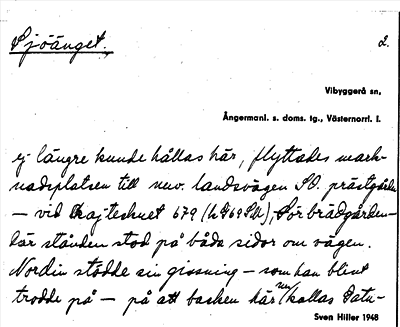 Sjöänget.
2.
Vibyggerå sn,
Ångermanl. s. doms. tg., Västernorrl. l.
ej längre kunde hållas här, flyttades mark-
nadsplatsen till nuv. landsvägen SO. prästgården
— vid 679 Sör brädgården —
där stånden stod på båda sidor om vägen.
Nordin stödde sin gissning — som han blint
trodde på — på att backen här nu kallas Satu-
Sven Hiller 1948